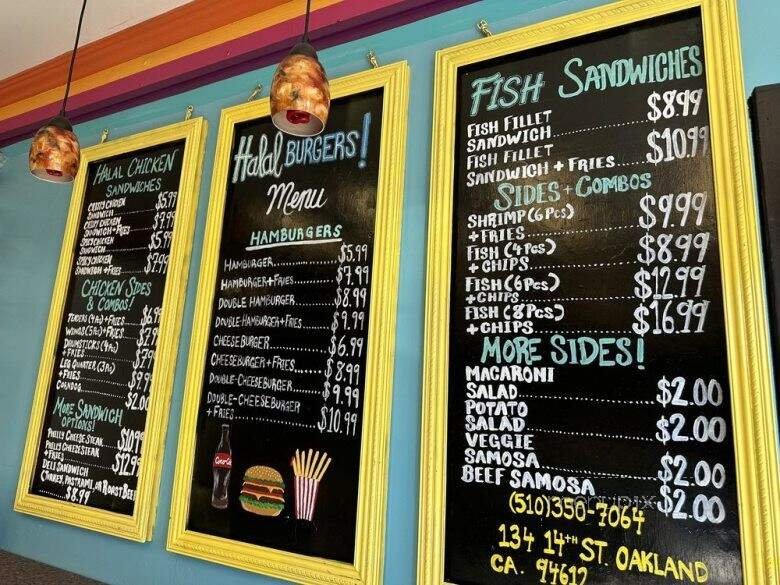 HALAL CHICKEN
SANDWICHES
CRISPY CHICKEN
SANDWICH.......$5.99
CRISPY CHICKEN
SANDWICH+FRIES....$7.99
SPICY CHICKEN
SANDWICH.......$5.99
SPICY CHICKEN
SANDWICH+FRIES....$7.99
CHICKEN SIDES
& COMBOS!
TENDERS (4Pc)+FRIES....$6.99
WINGS (5Pc)+FRIES....$7.99
DRUMSTICKS (4Pc)
+FRIES.......$7.99
LEG QUARTER (3Pc)
+FRIES.......$9.99
CORNDOG.......$2.00
MORE SANDWICH
OPTIONS!
PHILLY CHEESE STEAK....$10.99
PHILLY CHEESESTEAK
+FRIES.......$12.99
DELI SANDWICH
(TURKEY, PASTRAMI, OR ROAST BEEF)
.......$8.99
Halal BURGERS!
Menu
HAMBURGERS
HAMBURGER.......$5.99
HAMBURGER+FRIES.......$7.99
DOUBLE HAMBURGER.......$8.99
DOUBLE-HAMBURGER+FRIES.......$9.99
CHEESEBURGER.......$6.99
CHEESEBURGER+FRIES.......$8.99
DOUBLE-CHEESEBURGER.......$9.99
DOUBLE-CHEESEBURGER
+FRIES.......$10.99
Coca-Cola
FISH SANDWICHES
FISH FILLET
SANDWICH.......$8.99
FISH FILLET
SANDWICH + FRIES.......$10.99
SIDES + COMBOS
SHRIMP (6 Pcs)
+ FRIES.......$9.99
FISH (4 Pcs)
+ CHIPS.......$8.99
FISH (6 Pcs)
+ CHIPS.......$12.99
FISH (8 Pcs)
+ CHIPS.......$16.99
MORE SIDES!
MACARONI
SALAD.......$2.00
POTATO
SALAD.......$2.00
VEGGIE
SAMOSA.......$2.00
BEEF SAMOSA.......$2.00
(510)350-7064
134 14TH ST. OAKLAND
CA. 94612